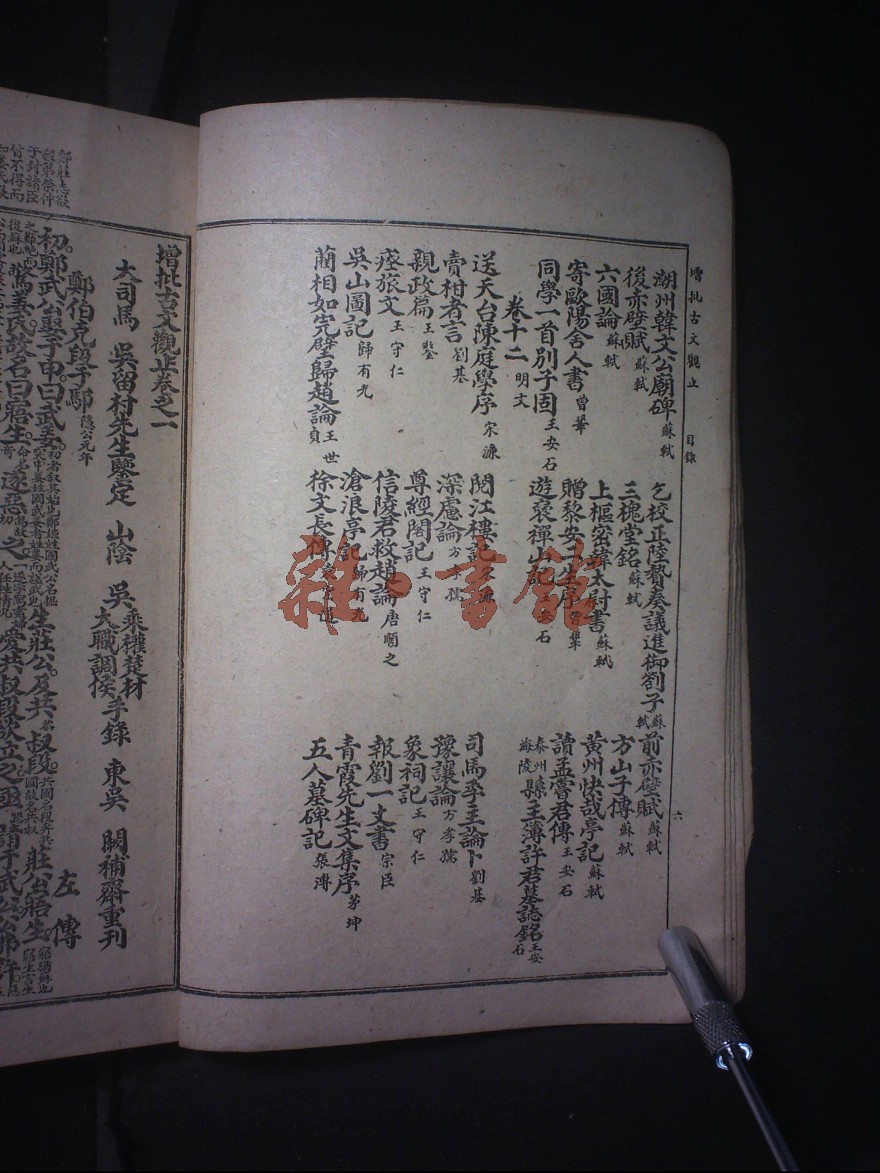 增批古文觀止 目錄 六
潮州韓文公廟碑蘇軾 乞校正陸贄奏議進御劄子蘇軾 前赤壁賦蘇軾
後赤壁賦蘇軾 三槐堂銘蘇軾 方山子傳蘇軾
六國論蘇軾 上樞密韓太尉書蘇軾 黃州快哉亭記蘇軾
寄歐陽舍人書曾鞏 贈黎安二生序曾鞏 讀孟嘗君傳王安石
同學一首別子固王安石 遊褒禪山記王安石 泰州海陵縣主簿許君墓誌銘王安石
卷十二 明文
送天台陳庭學序宋濂 閱江樓記宋濂 司馬季主論卜劉基
賣柑者言劉基 深慮論方孝孺 豫讓論方孝孺
親政篇王鏊 尊經閣記王守仁 象祠記王守仁
瘞旅文王守仁 信陵君救趙論唐順之 報劉一丈書宗臣
吳山圖記歸有光 滄浪亭記歸有光 青霞先生文集序茅坤
藺相如完璧歸趙論王世貞 徐文長傳 五人墓碑記張溥
雜·書館
增批古文觀止卷之一
大司馬 吳留村先生鑒定 山陰 吳乘權楚材 大職調侯 手錄 東吳 闕補齋重刊
鄭伯克段于鄢隱公元年 左傳
初。鄭武公娶于申。曰武姜。生莊公。及共叔段。莊公寤生。
驚姜氏。故名曰寤生。遂惡之。愛共叔段。欲立之。亟請于武公。公弗許。